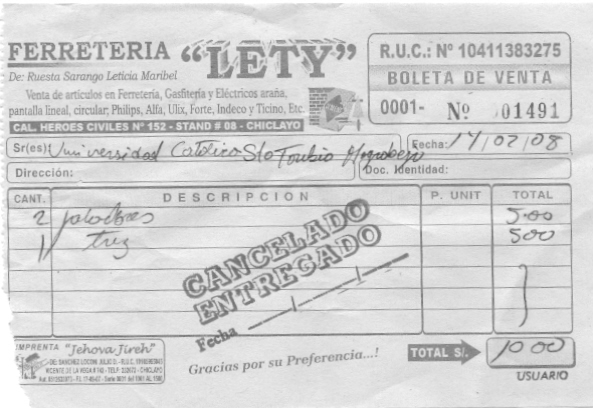 FERRETERIA "LETY"
De: Ruesta Sarango Leticia Maribel
Venta de artículos en Ferretería, Gasfitería y Eléctricos araña,
pantalla lineal, circular; Philips, Alfa, Ulix, Forte, Indeco y Ticino, Etc.
CAL. HEROES CIVILES Nº 152 - STAND # 08 - CHICLAYO
R.U.C.: Nº 10411383275
BOLETA DE VENTA
0001- Nº 01491
Sr(es): Universidad Católica Sto Toribio Mogrobejo
Fecha: 14/02/08
Dirección:
Doc. Identidad:
CANT. DESCRIPCION P. UNIT TOTAL
2 5.00
1 500
CANCELADO
ENTREGADO
Fecha
IMPRENTA "Jehova Jireh"
Gracias por su Preferencia...!
TOTAL S/. 10 00
USUARIO